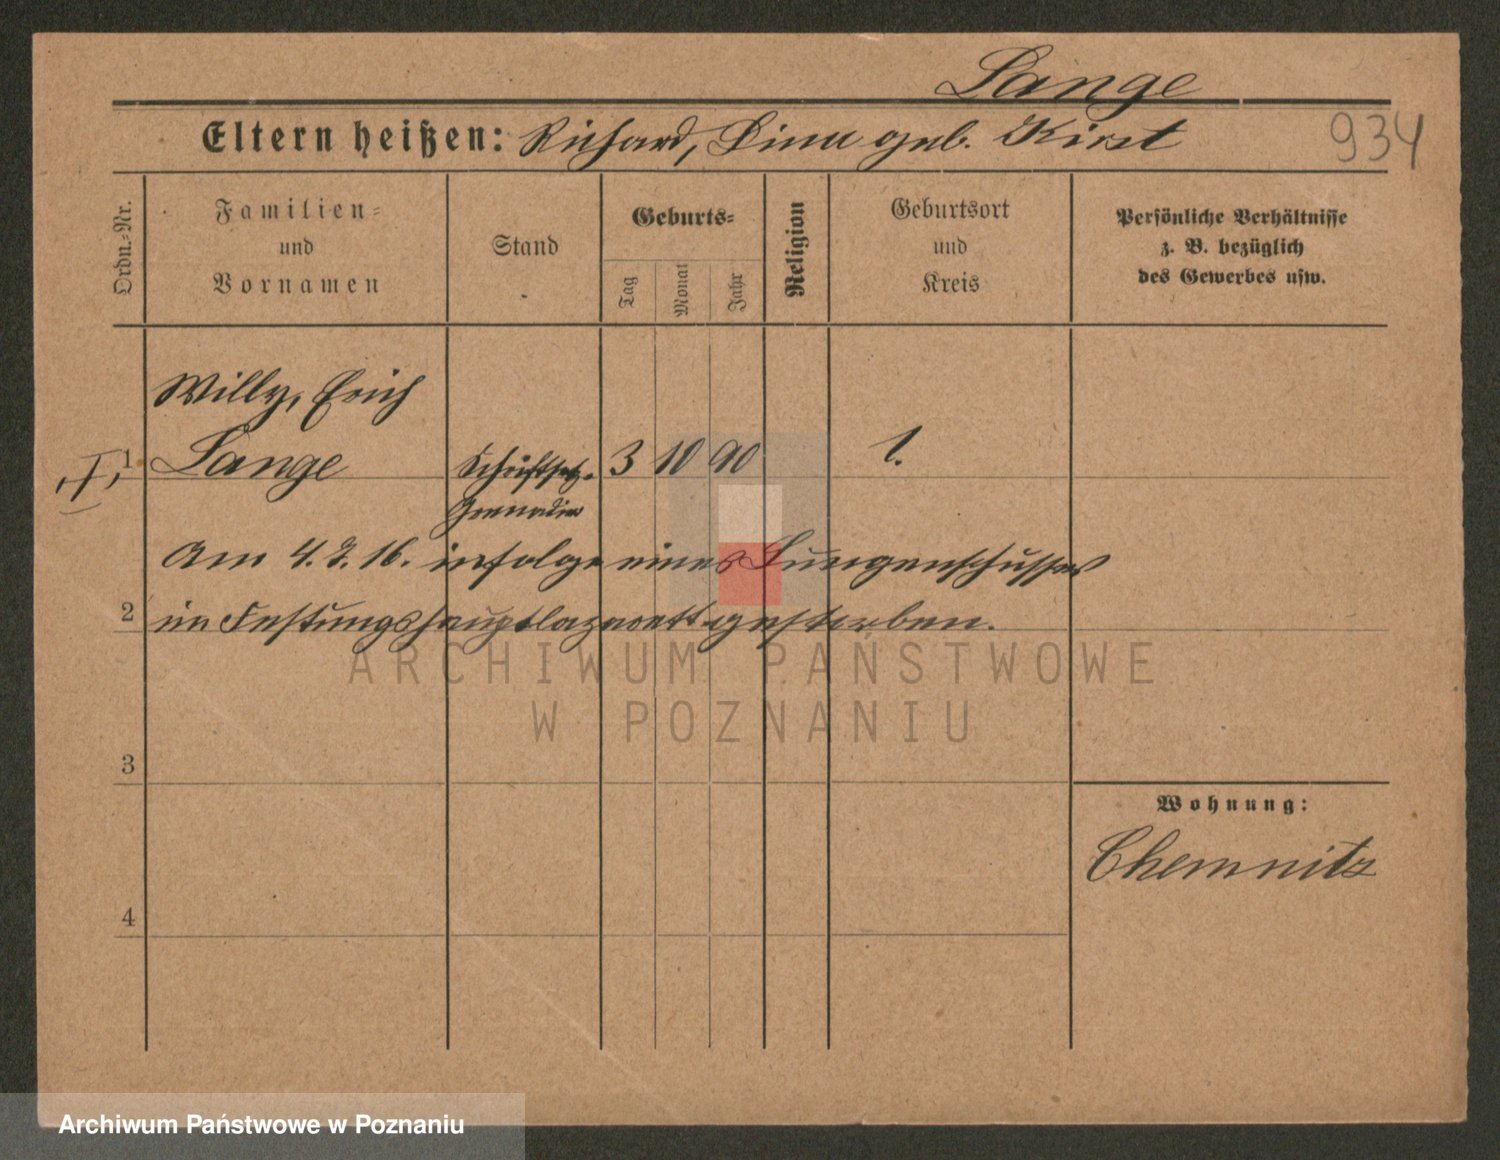 Lange
Eltern heißen: Richard, Lina geb. Kirst
934
Ordn.-Nr.
Familien-
und
Vornamen
Stand
Geburts-
Tag
Monat
Jahr
Religion
Geburtsort
und
Kreis
Persönliche Verhältnisse
z. B. bezüglich
des Gewerbes usw.
Willy, Erich
1 Lange Schriftsetz. 3 10 90 1.
Grenadier
Am 4.2.16. infolge eines Lungenschusses
2 im Festungshauptlazarett gestorben.
ARCHIWUM PAŃSTWOWE
W POZNANIU
3
Wohnung:
Chemnitz
4
Archiwum Państwowe w Poznaniu